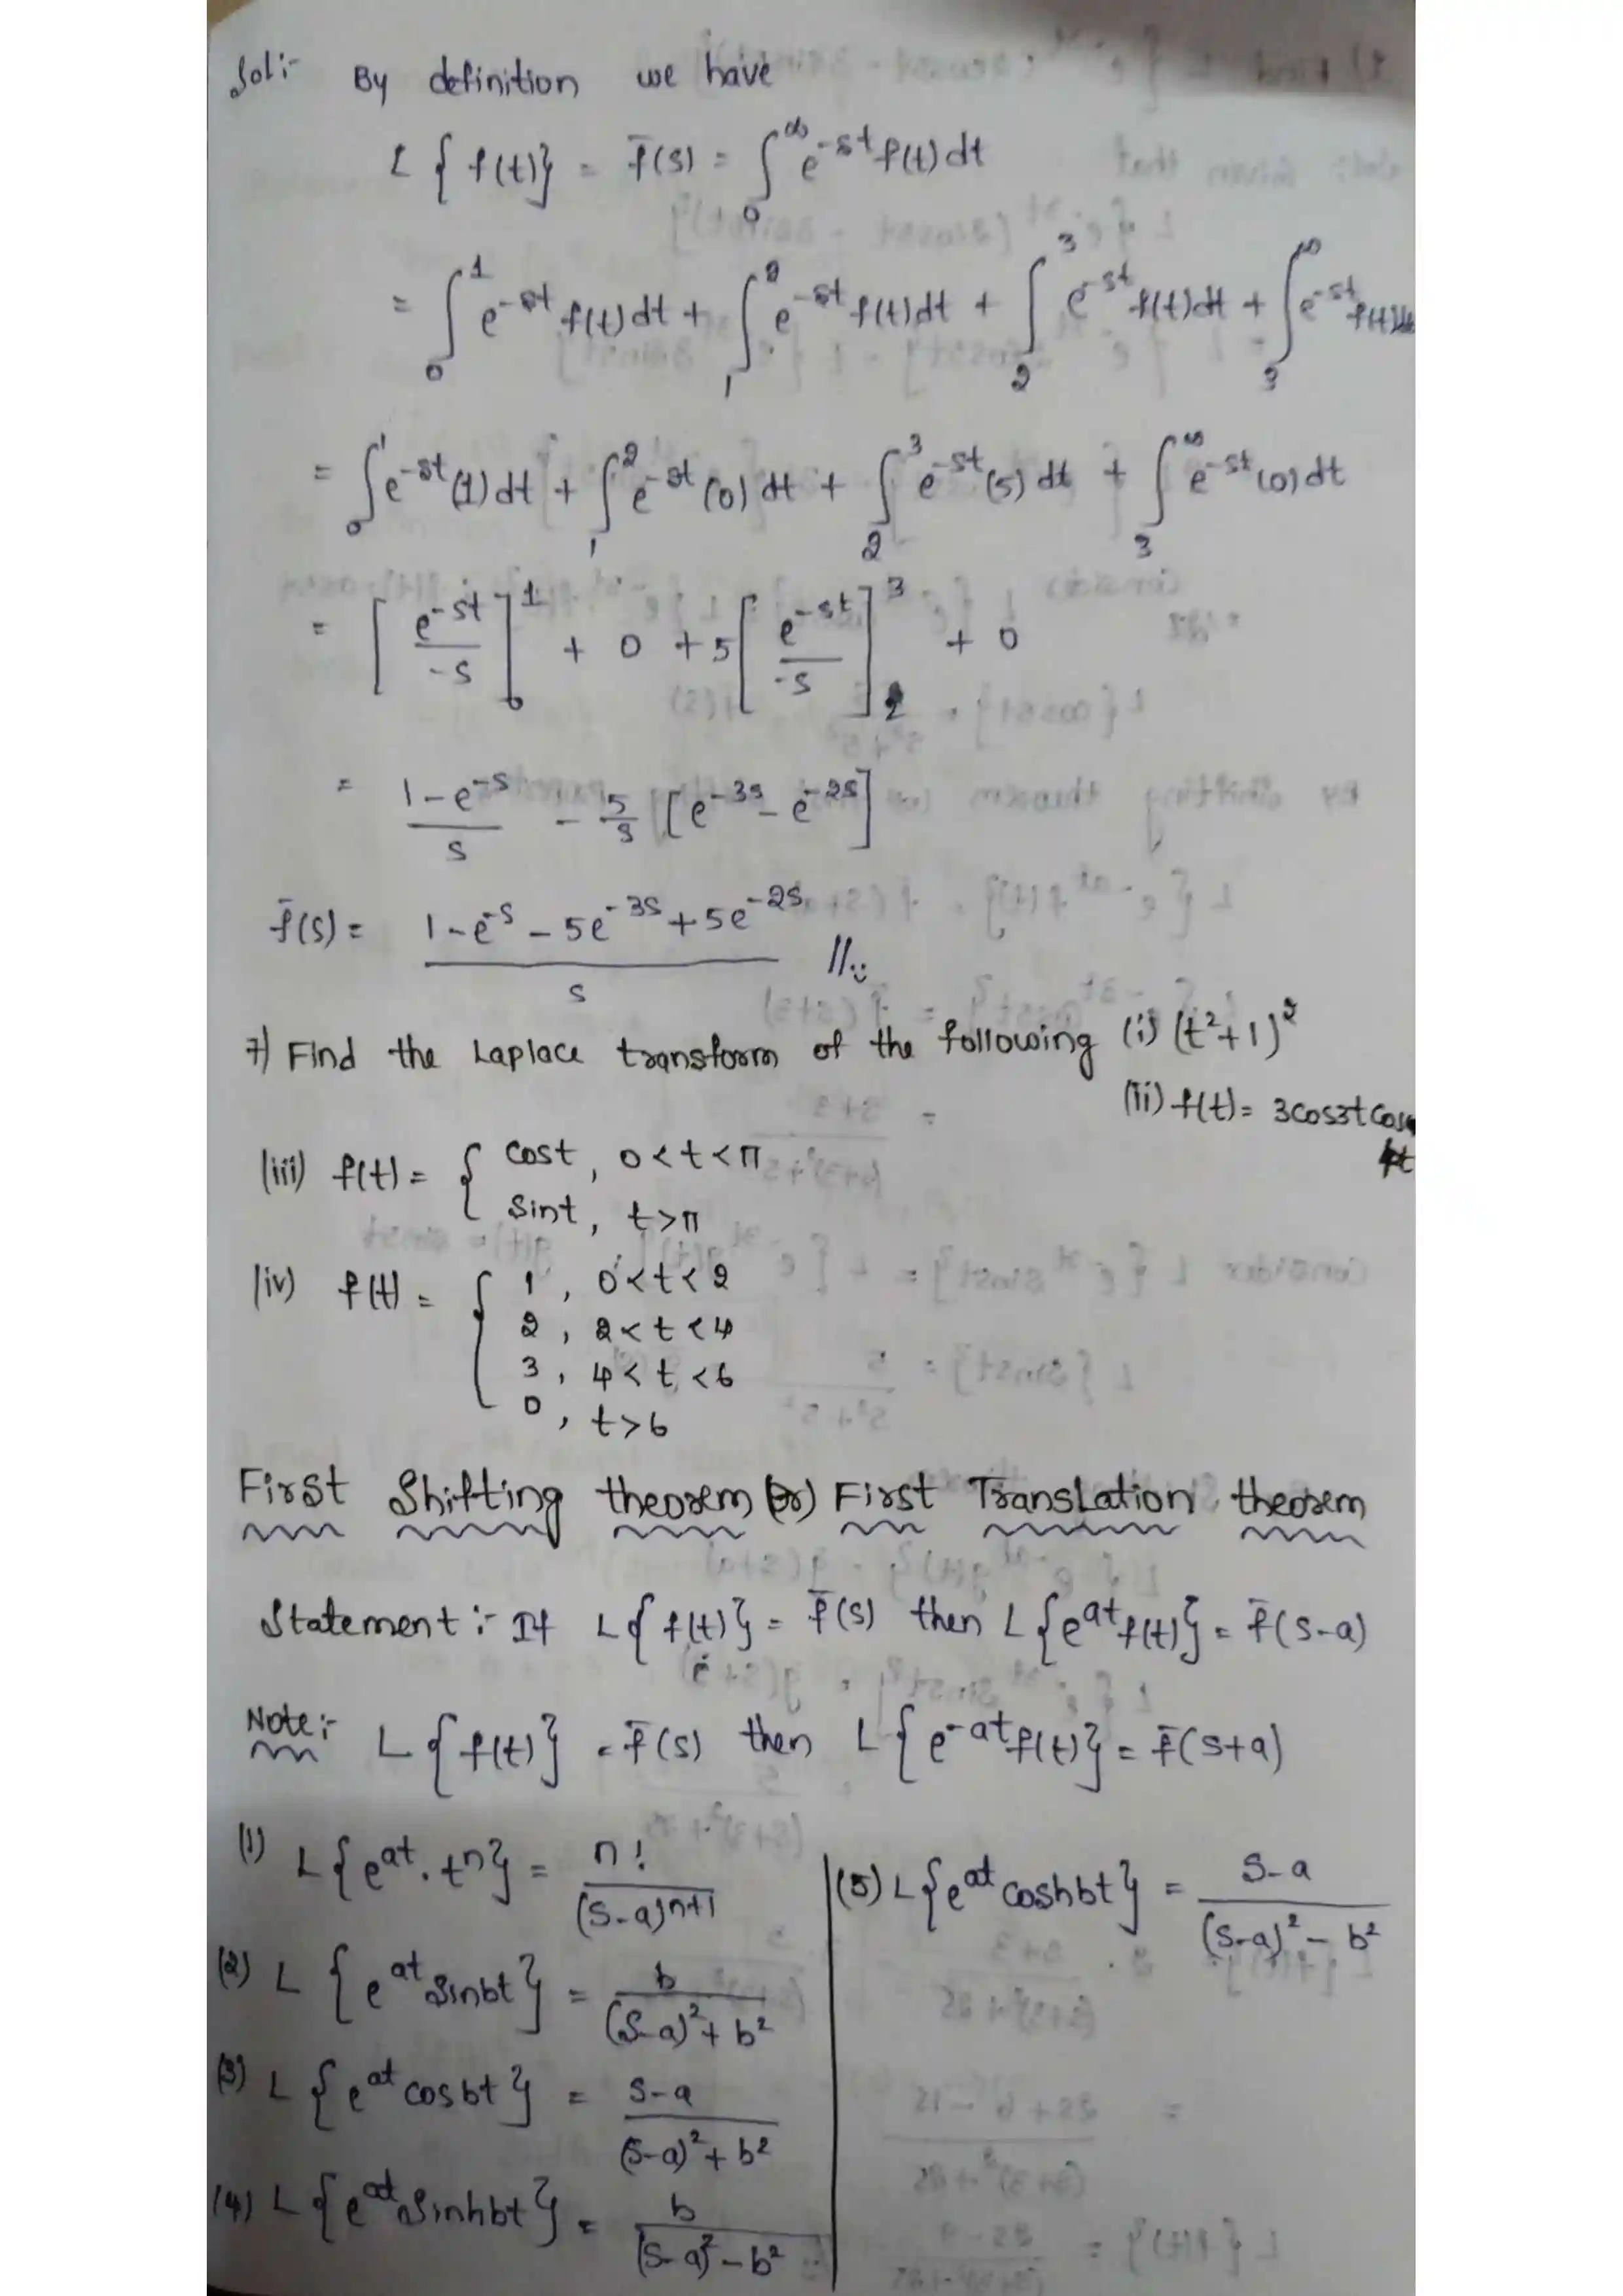 Sol:- By definition we have
L{f(t)} = f̄(s) = ∫₀^∞ e^-st f(t) dt
= ∫₀^1 e^-st f(t) dt + ∫₁^2 e^-st f(t) dt + ∫₂^3 e^-st f(t) dt + ∫₃^∞ e^-st f(t) dt
= ∫₀^1 e^-st (1) dt + ∫₁^2 e^-st (0) dt + ∫₂^3 e^-st (5) dt + ∫₃^∞ e^-st (0) dt
= [e^-st / -s]₀^1 + 0 + 5[e^-st / -s]₂^3 + 0
= (1-e^-s)/s - 5/s [e^-3s - e^-2s]
f̄(s) = (1-e^-s - 5e^-3s + 5e^-2s)/s //
7) Find the Laplace transform of the following (i) (t²+1)²
(ii) f(t) = 3cos3t cos4t
(iii) f(t) = { cost, 0<t<π
sint, t>π
(iv) f(t) = { 1, 0<t<2
2, 2<t<4
3, 4<t<6
0, t>6
First Shifting theorem (or) First Translation theorem
Statement:- If L{f(t)} = f̄(s) then L{e^at f(t)} = f̄(s-a)
Note:- L{f(t)} = f̄(s) then L{e^-at f(t)} = f̄(s+a)
(1) L{e^at . t^n} = n! / (s-a)^n+1
(2) L{e^at sinbt} = b / ((s-a)²+b²)
(3) L{e^at cosbt} = s-a / ((s-a)²+b²)
(4) L{e^at sinhbt} = b / ((s-a)²-b²)
(5) L{e^at coshbt} = s-a / ((s-a)²-b²)